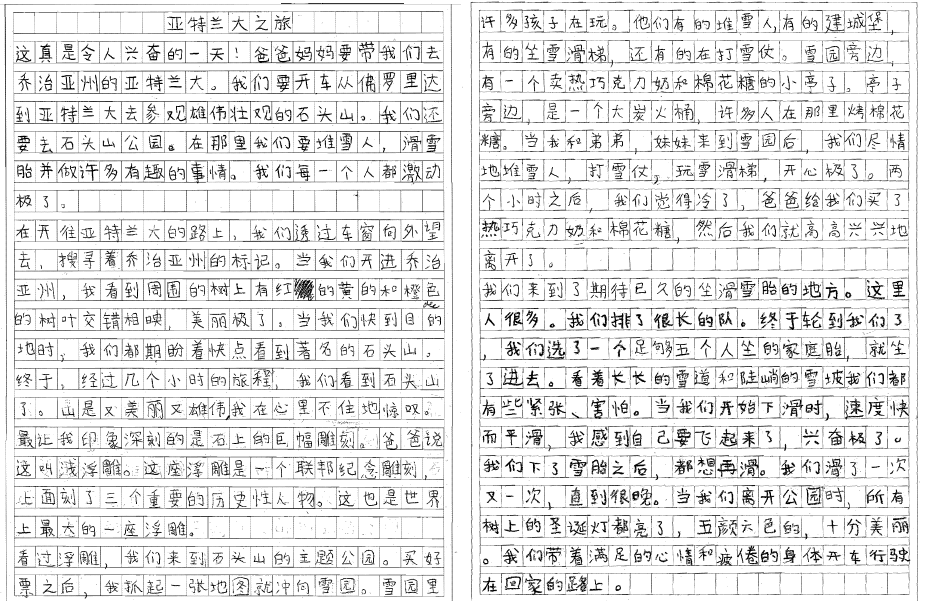 亚特兰大之旅
这真是令人兴奋的一天！爸爸妈妈要带我们去
乔治亚州的亚特兰大。我们要开车从佛罗里达
到亚特兰大去参观雄伟壮观的石头山。我们还
要去石头山公园。在那里我们要堆雪人，滑雪
胎并做许多有趣的事情。我们每一个人都激动
极了。
在开往亚特兰大的路上，我们透过车窗向外望
去，搜寻着乔治亚州的标记。当我们开进乔治
亚州，我看到周围的树上有红的黄的和橙色
的树叶交错相映，美丽极了。当我们快到目的
地时，我们都期盼着快点看到著名的石头山。
终于，经过几个小时的旅程，我们看到石头山
了。山是又美丽又雄伟我在心里不住地惊叹。
最让我印象深刻的是石上的巨幅雕刻。爸爸说
这叫浅浮雕。这座浮雕是一个联邦纪念雕刻，
上面刻了三个重要的历史性人物。这也是世界
上最大的一座浮雕。
看过浮雕，我们来到石头山的主题公园。买好
票之后，我抓起一张地图就冲向雪园。雪园里
许多孩子在玩。他们有的堆雪人，有的建城堡，
有的坐雪滑梯，还有的在打雪仗。雪园旁边，
有一个卖热巧克力奶和棉花糖的小亭子。亭子
旁边，是一个大炭火桶，许多人在那里烤棉花
糖。当我和弟弟，妹妹来到雪园后，我们尽情
地堆雪人，打雪仗，玩雪滑梯，开心极了。两
个小时之后，我们觉得冷了，爸爸给我们买了
热巧克力奶和棉花糖，然后我们就高高兴兴地
离开了。
我们来到了期待已久的坐滑雪胎的地方。这里
人很多。我们排了很长的队。终于轮到我们了
，我们选了一个足够五个人坐的家庭胎，就坐
了进去。看着长长的雪道和陡峭的雪坡我们都
有些紧张、害怕。当我们开始下滑时，速度快
而平滑，我感到自己要飞起来了，兴奋极了。
我们下了雪胎之后，都想再滑。我们滑了一次
又一次，直到很晚。当我们离开公园时，所有
树上的圣诞灯都亮了，五颜六色的，十分美丽
。我们带着满足的心情和疲倦的身体开车行驶
在回家的路上。